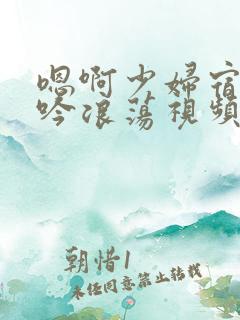 嗯啊少婦宿
吟浪蕩視頻
朝惜1
未经同意禁止转载